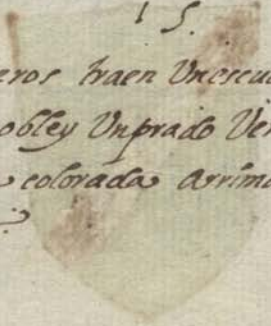 15.
eros traen Vnescu
obley Vnprado Ver
colorada arrima